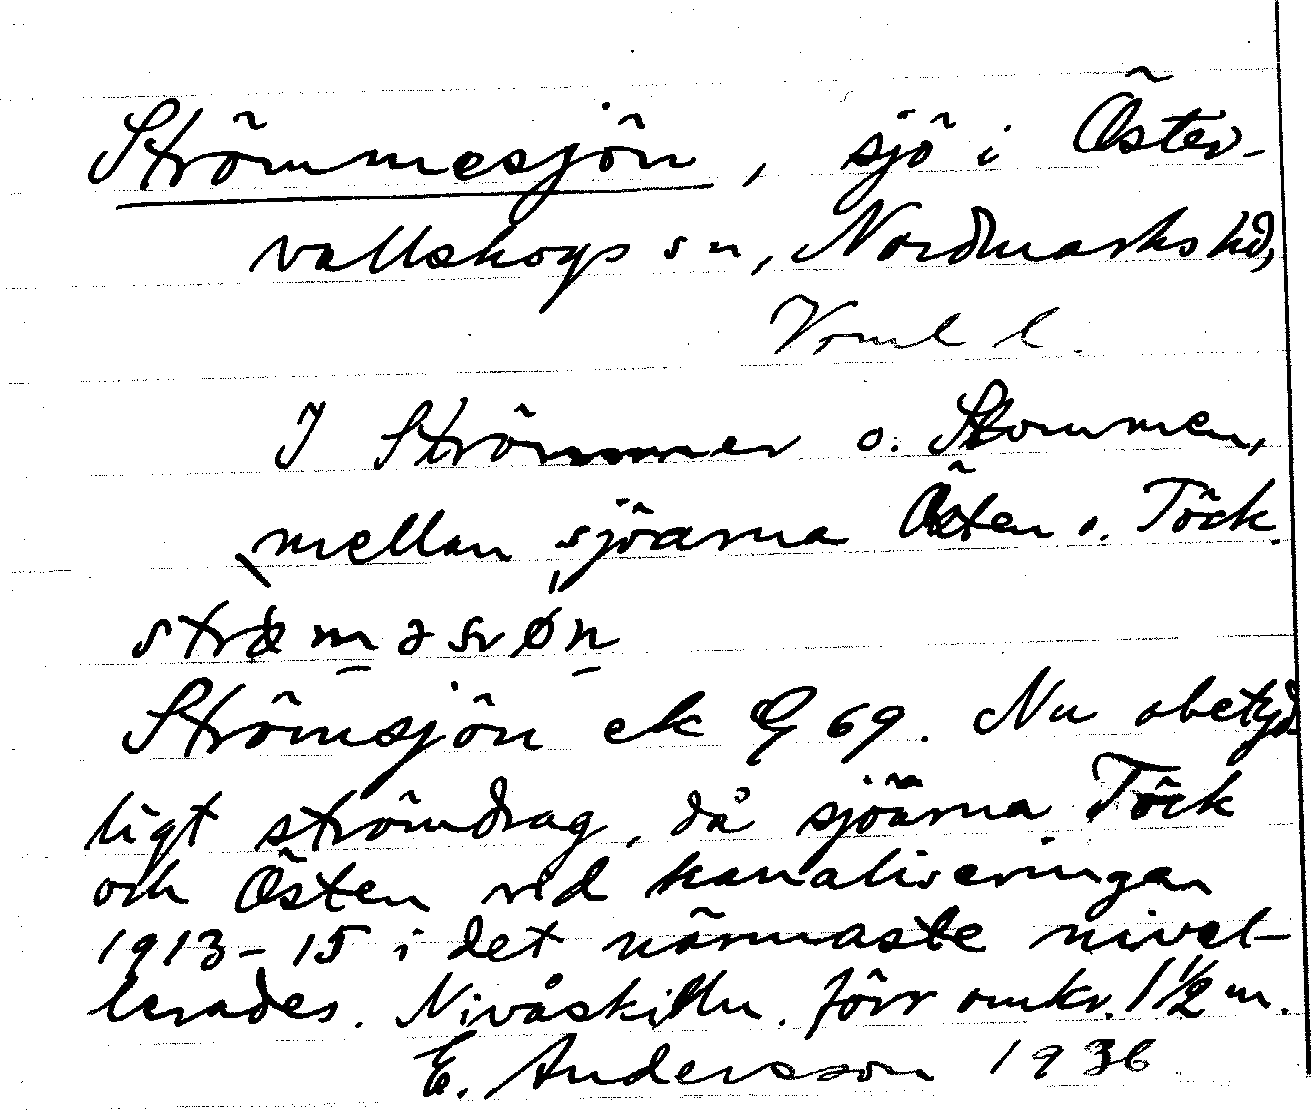 Strömmesjön, sjö i Öster-
vallskogs sn, Nordmarks hd,
Vrml l.
I Strömmer o. Stommen,
mellan sjöarna Östen o. Töck.
Strömsjön ek G 69. Nu obetyd
ligt strömdrag, då sjöarna Töck
och Östen vid kanaliseringen
1913-15 i det närmaste nivel-
lerades. Nivåskilln. förr omkr. 1 1/2 m.
E. Andersson 1936